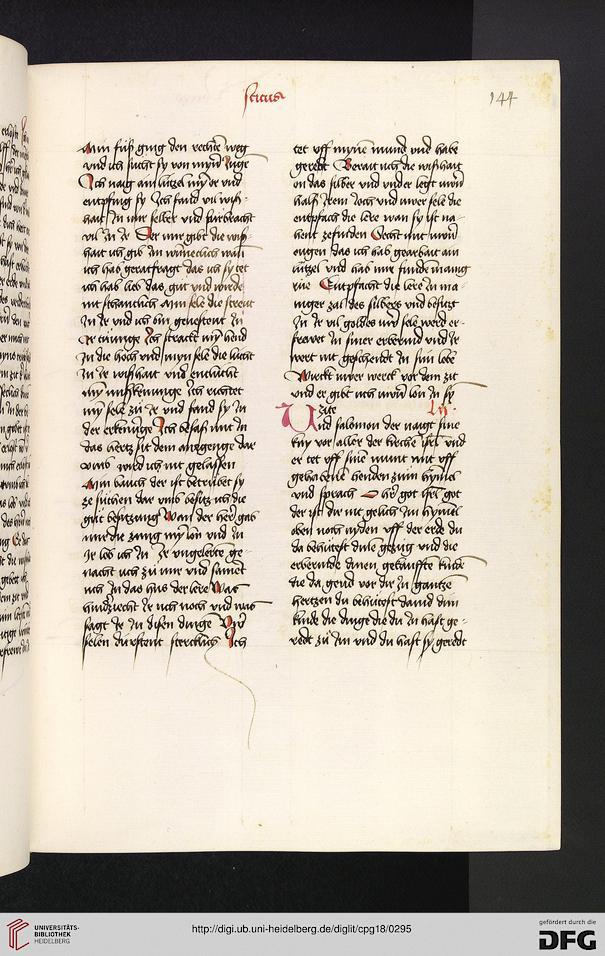 sticus
144
Min füß ging den rechte weg
vnd ich sucht sy von myner Juge
Ich naig ain lützel myn or vnd
entpfing sy Ich fand vil wiß-
hait In mir selber vnd fürbracht
vil In Ir Der mir gibt die wiß
hait ich gib Im
ich hab geratfragt das ich sy tet
ich hab lieb das gut vnd würde
nit schentlich Min sele die streit
In Ir vnd ich bin geuestent In
Ir Ich strackt myn hend
In die höch vnd myn sele die lücht
In Ir wißhait vnd entlücht
myn Ich richtet
myn sele zu Ir vnd fand sy In
der Ich besaß mit In
das hertz sit dem anegenge dar
vmb wird ich nit gelassen
Min buch der ist betrübet sy
ze suchen dar vmb besitz ich die
gut besitzung Wan der her gab
mir die zung myn lon vnd In
Ir lob ich In Ir vngelerte ge-
nacht uch zu mir vnd samet
uch In das hus der lere Was
hindzücht Ir uch noch vnd was
sagt Ir In disen dinge Vwer
selen die stent stercklich Ich
tet vff myne mund vnd habe
geredt Berait uch die wißhait
on das silber vnd vnder legt uwern
halß Irem Ioch vnd uwer sele die
entpfach die lere wan sy ist na-
hent zefinden Secht mit uwern
ougen das ich hab gearbait ain
lützel vnd hab mir funde manig
rue Entpfacht die lere In ma-
niger zal des silbers vnd besitzt
In Ir vil goldes uwer sele werd er-
frewet In siner erbermd vnd Ir
wert nit geschendet In sim lobe
Wurckt uwer werck vor dem zit
vnd er gibt uch uwern lon In sy
zite
Vnd salomon der naigt sine
kny vor aller der kirche israhel vnd
er tet vff sine munt mit vff
gehabene henden zum hymel
vnd sprach O her got israhel got
der ist dir nit gelich Im hymel
oben noch nyden vff der erde du
da behütest dine gezüg vnd die
erbermde dinen kinde
die da gend vor dir In gantze
hertzen du behütest dauid dim
kinde die dinge die du In hast ge-
redt zu Im vnd du hast sy geredt
UNIVERSITÄTS-
BIBLIOTHEK
HEIDELBERG
http://digi.ub.uni-heidelberg.de/diglit/cpg18/0295
gefördert durch die
DFG